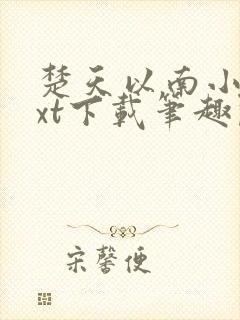 楚天以南小
xt下载笔趣
宋馨便